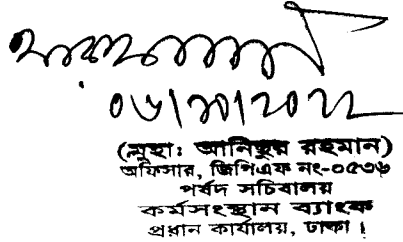 (মুহা: আনিছুর রহমান)
অফিসার, জিপিএফ নং-০৫৩৬
পর্ষদ সচিবালয়
কর্মসংস্থান ব্যাংক
প্রধান কার্যালয়, ঢাকা।